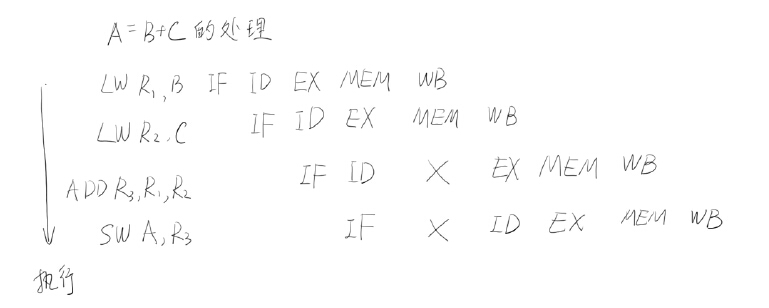 A=B+C 的处理
LW R1,B IF ID EX MEM WB
LW R2.C IF ID EX MEM WB
ADD R3,R1,R2 IF ID X EX MEM WB
SW A,R3 IF X ID EX MEM WB
执行